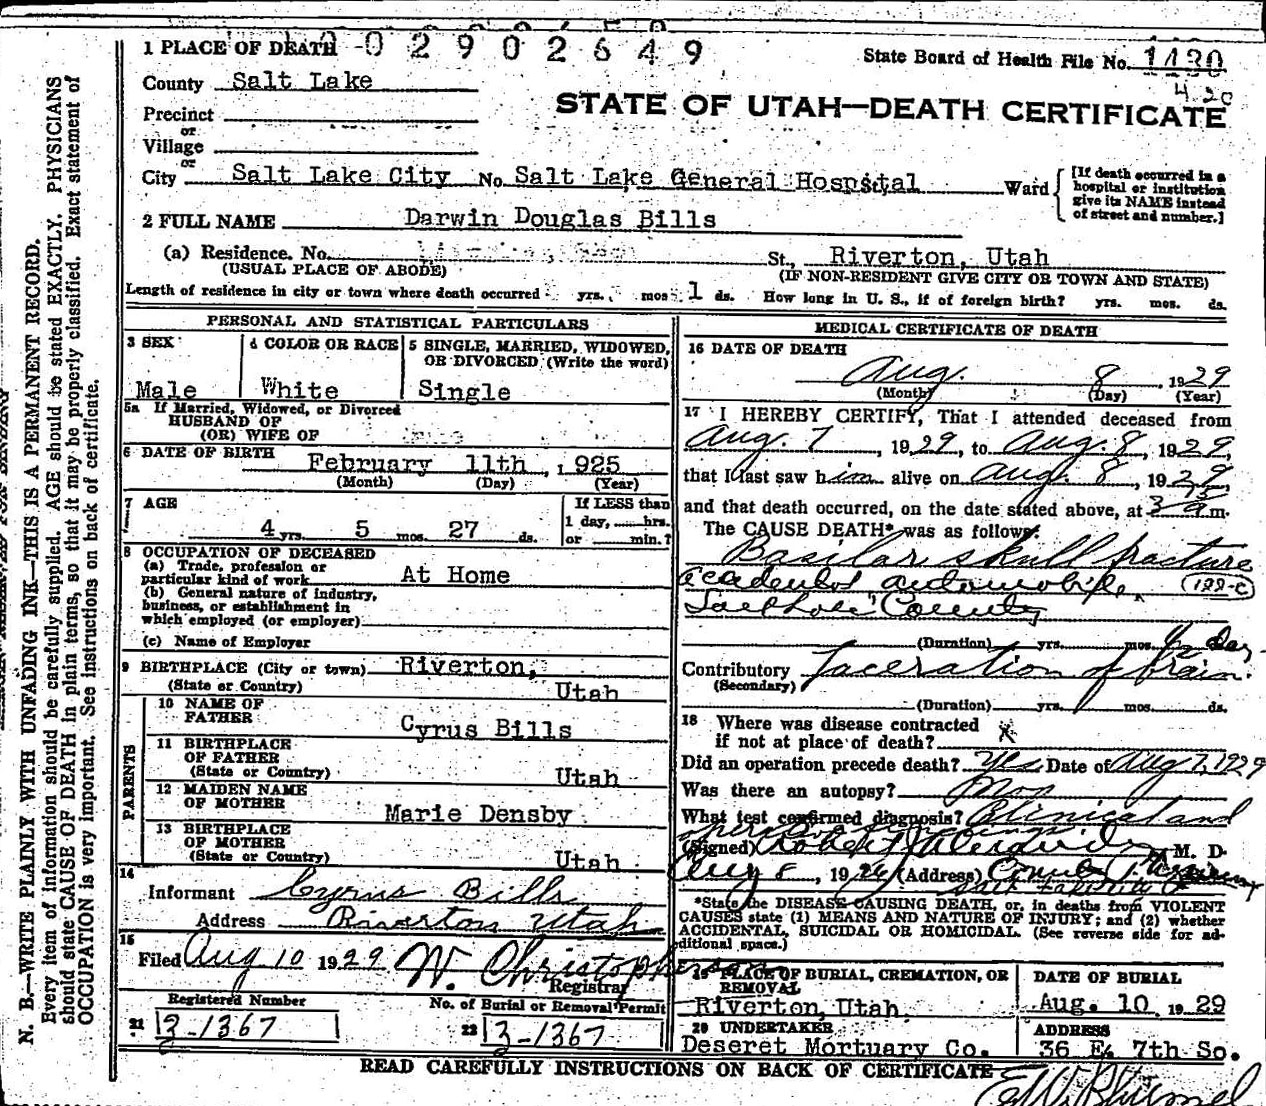 1 PLACE OF DEATH 0 2 9 0 2 6 4 9
State Board of Health File No. 1430
County Salt Lake
4 20
STATE OF UTAH—DEATH CERTIFICATE
Precinct
or
Village
or
City Salt Lake City No. Salt Lake General Hospital Ward
[If death occurred in a hospital or institution give its NAME instead of street and number.]
2 FULL NAME Darwin Douglas Bills
(a) Residence. No. St., Riverton, Utah
(USUAL PLACE OF ABODE) (IF NON-RESIDENT GIVE CITY OR TOWN AND STATE)
Length of residence in city or town where death occurred yrs. mos. 1 ds. How long in U. S., if of foreign birth? yrs. mos. ds.
PERSONAL AND STATISTICAL PARTICULARS
3 SEX
Male
4 COLOR OR RACE
White
5 SINGLE, MARRIED, WIDOWED,
OR DIVORCED (Write the word)
Single
5a If Married, Widowed, or Divorced
HUSBAND OF
(OR) WIFE OF
6 DATE OF BIRTH
February 11th, 1925
(Month) (Day) (Year)
7 AGE
4 yrs. 5 mos. 27 ds.
If LESS than
1 day, hrs.
or min.?
8 OCCUPATION OF DECEASED
(a) Trade, profession or
particular kind of work At Home
(b) General nature of industry,
business, or establishment in
which employed (or employer)
(c) Name of Employer
9 BIRTHPLACE (City or town) Riverton,
(State or Country) Utah
PARENTS
10 NAME OF
FATHER Cyrus Bills
11 BIRTHPLACE
OF FATHER
(State or Country) Utah
12 MAIDEN NAME
OF MOTHER Marie Densby
13 BIRTHPLACE
OF MOTHER
(State or Country) Utah
14
Informant Cyrus Bills
Address Riverton Utah
15
Filed Aug 10 1929 W. Christopherson
Registrar
Registered Number
21 3-1367
No. of Burial or Removal Permit
22 3-1367
MEDICAL CERTIFICATE OF DEATH
16 DATE OF DEATH
Aug. 8, 1929
(Month) (Day) (Year)
17 I HEREBY CERTIFY, That I attended deceased from
Aug. 7, 1929, to Aug. 8, 1929,
that I last saw him alive on Aug. 8, 1929,
and that death occurred, on the date stated above, at 3 a m.
The CAUSE DEATH* was as follows:
Basilar skull fracture
automobile
County
(Duration) yrs. mos. Day
Contributory Laceration of brain.
(Secondary)
(Duration) yrs. mos. ds.
18 Where was disease contracted
if not at place of death?
Did an operation precede death? Yes Date of Aug 7, 1929
Was there an autopsy?
What test confirmed diagnosis? Clinical and
(Signed) Robert M. D.
Aug 8, 1929 (Address)
*State the DISEASE CAUSING DEATH, or, in deaths from VIOLENT
CAUSES state (1) MEANS AND NATURE OF INJURY; and (2) whether
ACCIDENTAL, SUICIDAL OR HOMICIDAL. (See reverse side for ad-
ditional space.)
19 PLACE OF BURIAL, CREMATION, OR
REMOVAL
Riverton, Utah
DATE OF BURIAL
Aug. 10, 1929
20 UNDERTAKER
Deseret Mortuary Co.
ADDRESS
36 E. 7th So.
READ CAREFULLY INSTRUCTIONS ON BACK OF CERTIFICATE
N. B.—WRITE PLAINLY WITH UNFADING INK—THIS IS A PERMANENT RECORD.
Every item of information should be carefully supplied. AGE should be stated EXACTLY. PHYSICIANS
should state CAUSE OF DEATH in plain terms, so that it may be properly classified. Exact statement of
OCCUPATION is very important. See instructions on back of certificate.